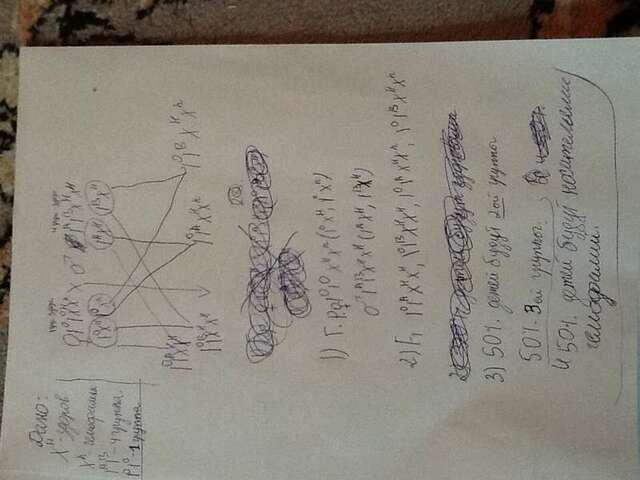 Дано:
X^H - здоров
X^h - гемофилия
I^A I^B - 4 группа.
I^0 I^0 - 1 группа
♀ I^0 I^0 X^H X^h × ♂ I^A I^B X^H X^H
I^0 X^H I^0 X^h I^A X^H I^B X^H
I^0 I^A X^H X^H
I^0 I^B X^H X^H
I^0 I^A X^H X^h
I^0 I^B X^H X^h
1) Г. P ♀ I^0 I^0 X^H X^h (I^0 X^H, I^0 X^h)
♂ I^A I^B X^H X^H (I^A X^H, I^B X^H)
2) F1 I^0 I^A X^H X^H, I^0 I^B X^H X^H, I^0 I^A X^H X^h, I^0 I^B X^H X^h
3) 50%. детей будут 2ой группы
50%. 3ей группы.
и 50%. детей будут носителями
гемофилии.